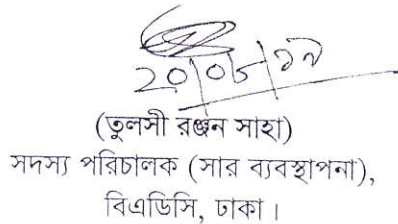 ২০/০৮/১৭
(তুলসী রঞ্জন সাহা)
সদস্য পরিচালক (সার ব্যবস্থাপনা),
বিএডিসি, ঢাকা।